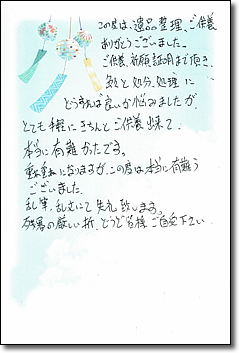 この度は、遺品整理、ご供養
ありがとうございました。
ご供養、祈願、証明まで頂き、
処と処分、処理に
どうすれば良いか悩みましたが、
とても手軽にきちんとご供養出来て、
本当に有難かったです。
重ね重ねになりますが、この度は本当に有難う
ございました。
乱筆、乱文にて失礼致します。
残暑の厳しい折、どうぞ皆様ご自愛下さい